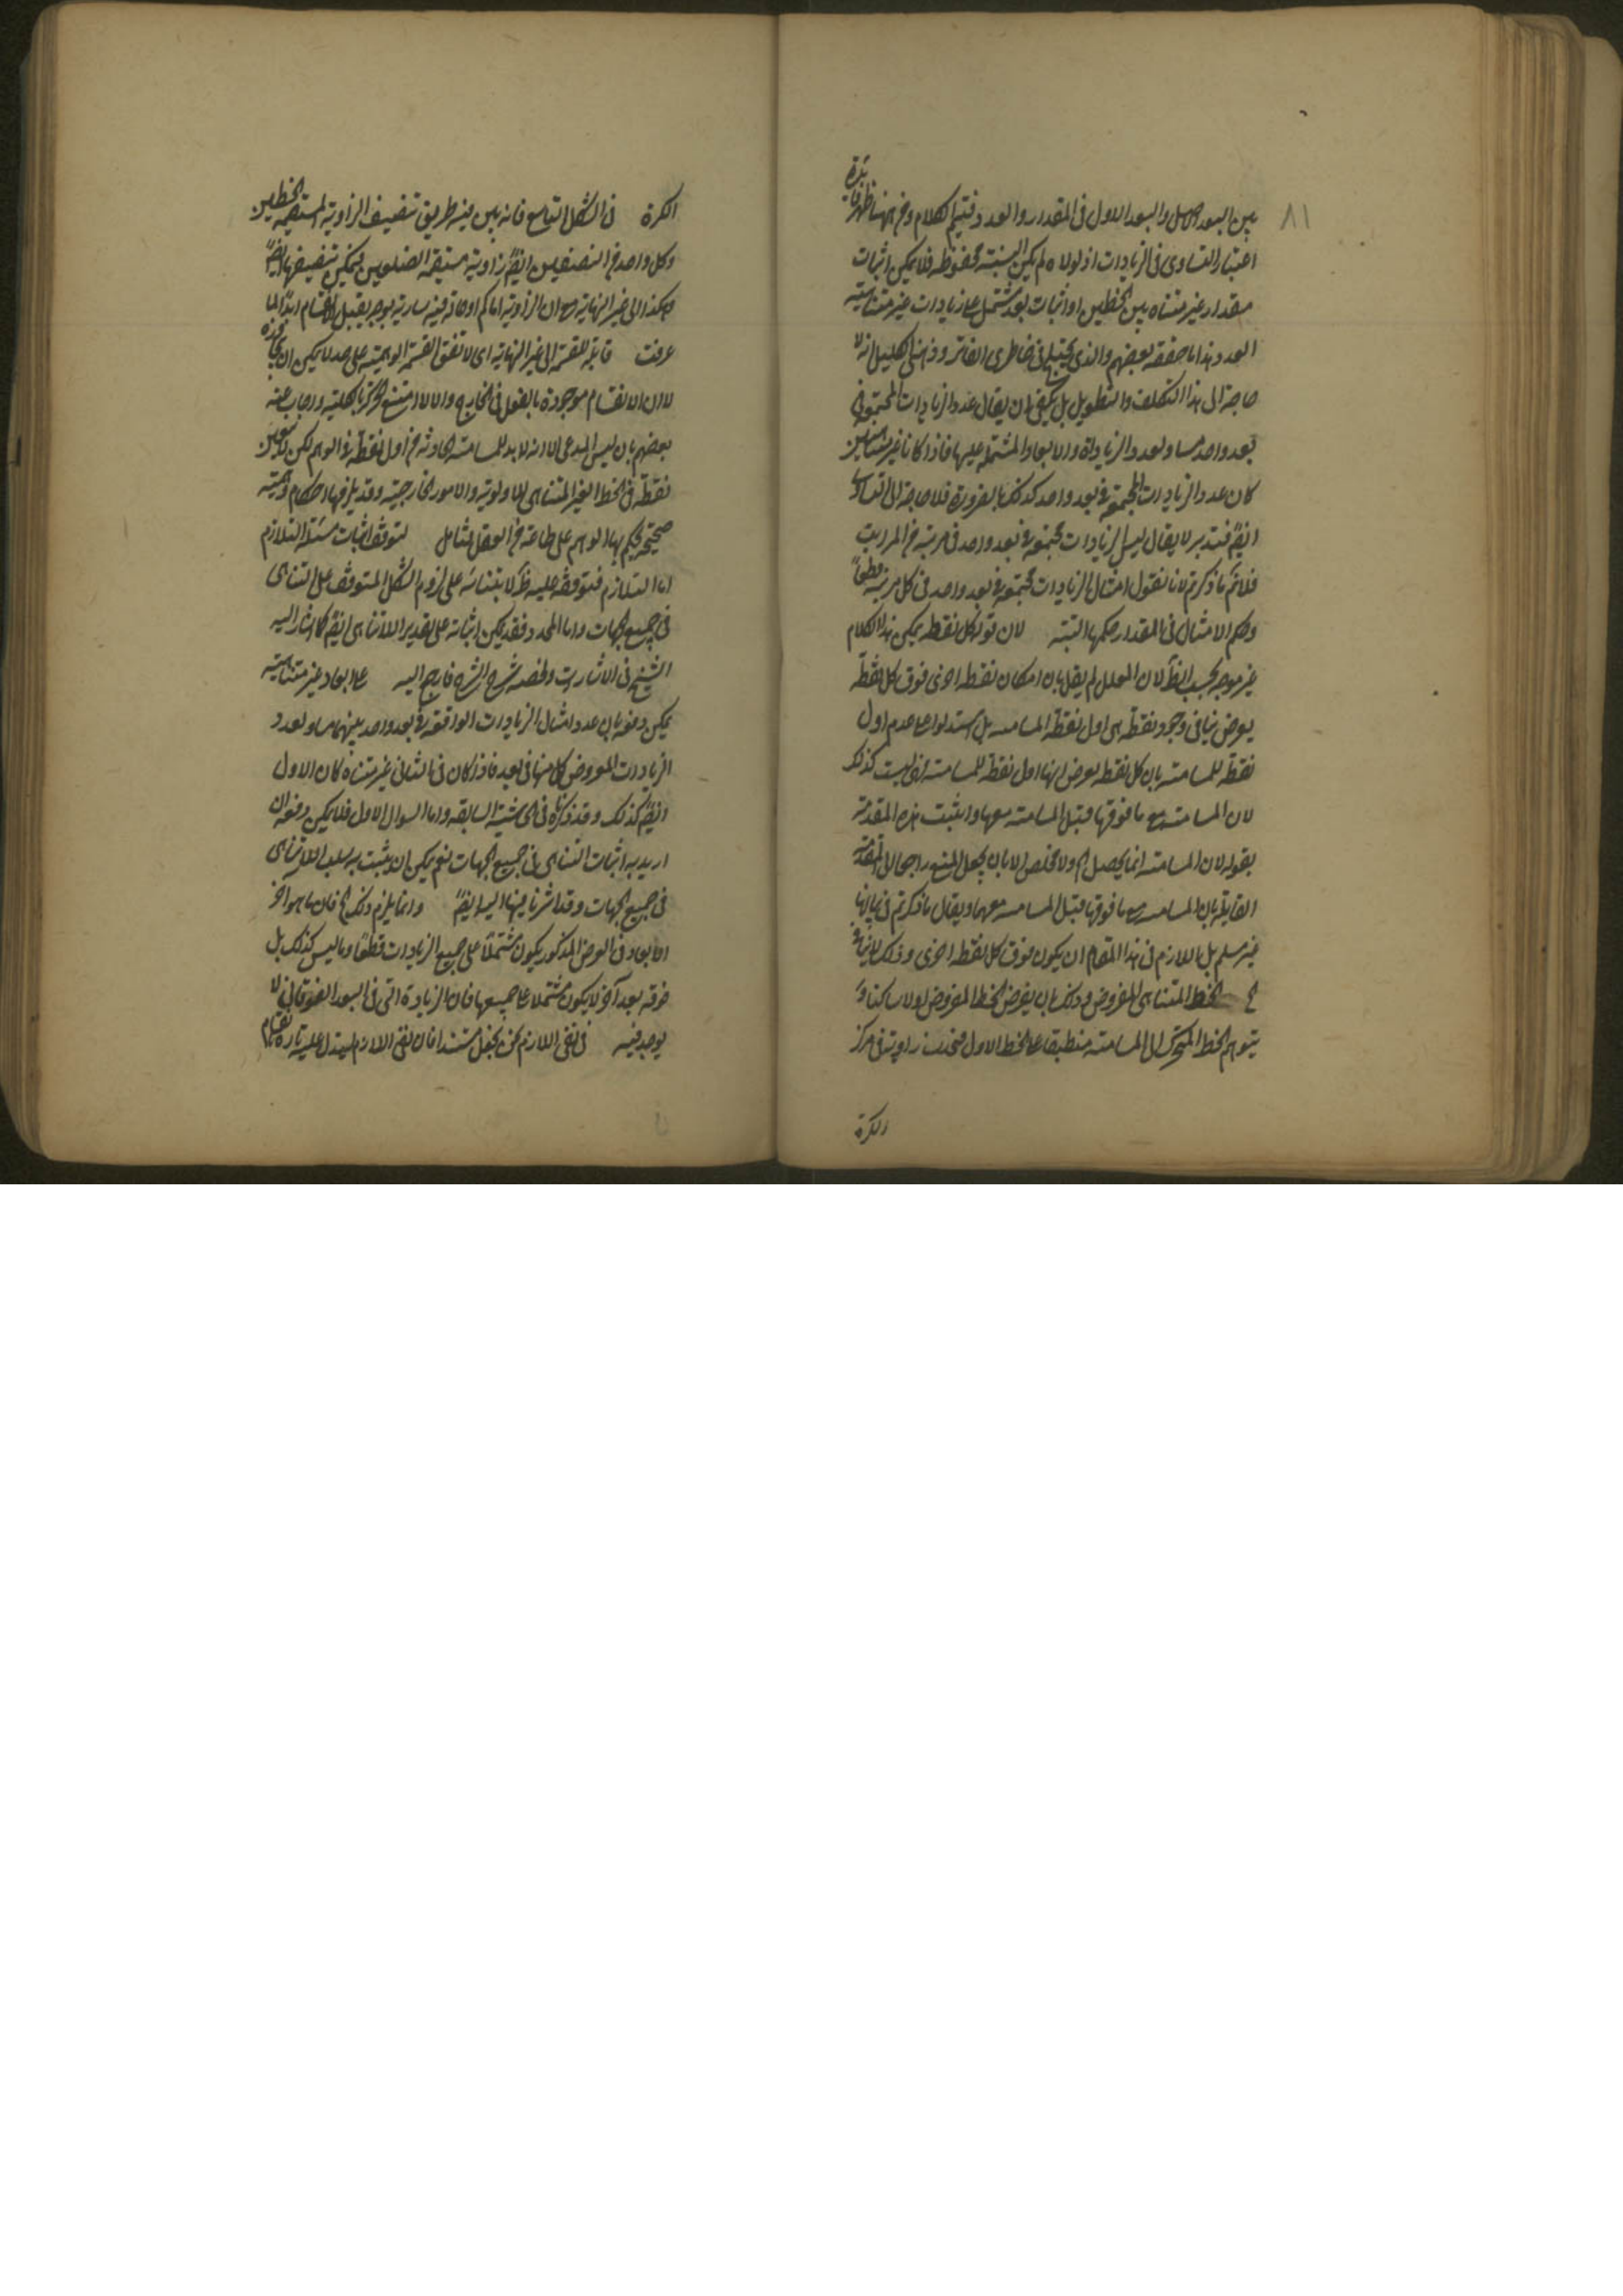 ٨١
بين البعد الاصل والبعد الاول فى المقدار والعدد فتيم الكلام ومن ههنا ظهر فائدة
اعتبار التساوى فى الزيادات اذ لولاه لم يكن النسبته محفوظة فلا يمكن اثبات
مقدار غير متناه بين الخطين او اثبات بعد مشتمل على زيادات غير متناهية
العدد هذا ما حققه بعضهم والذى يختبل فى خاطرى الفاتر وذهنى الكليل انه لا
حاجة الى هذا التكلف والتطويل بل يكفى ان يقال عدد الزيادات المجتمعة فى
بعد واحد مساو لعدد الزيادات والابعاد المشتملة عليها فاذا كانا غير متناهيين
كان عدد الزيادات المجتمعة فى بعد واحد كذلك بالضرورة فلا حاجة الى التساوى
ايضً فتدبر لا يقال ليس الزيادات مجتمعة فى بعد واحد فى مرتبة من المراتب
فلا تم ما ذكرتم لانا نقول امثال الزيادات مجتمعة فى بعد واحد فى كل مرتبة قطعاً
وحكم الامثال فى المقدار حكمها البتة لان قوله كل نقطه يمكن هذا الكلام
غير موجه بحسب الظ لان المعلل لم يقل بان امكان نقطه اخرى فوق كل نقطة
يعرض ينافى وجود نقطة هى اول نقطة المسامته بل استدل على عدم اول
نقطة للمسامته بان كل نقطه يعرض انها اول نقطة للمسامته فهى ليست كذلك
لان المسامتة مع ما فوقها قبل المسامته معها واثبت هذه المقدمة
بقوله لان المسامته انما يحصل الخ ولا مخلص الا بان يجعل المنع راجعا الى المقدمة
القايلة بان المسامته مع ما فوقها قبل المسامته معها ويقال ما ذكرتم فى بيانها
غير مسلم بل اللازم فى هذا المقام ان يكون فوق كل نقطه اخرى وذلك لا ينافيه
الخط المتناهى المفروض وذلك بان يفرض الخط المفروض اولا ساكنا و
يتوهم الخط المتحرك الى المسامته منطبقا على الخط الاول فيحدث زاوية فى مركز
الكرة
الكرة فى الشكل التاسع فانه بين فيه طريق تنصيف الزاوية المستقيمة الخطين
وكل واحد من النصفين ايضً زاوية مستقيمة الضلعين فيمكن تنصيفها ايضً
هكذا الى غير النهاية مع ان الزاوية اما كم او حالة فيه سارية يوجه يقبل الانقسام ابدا لما
عرفت قابلة للقسمة الى غير النهاية اى لا تقف القسمة الوهمية على حد لا يمكن ان يتجاوزه
لا ان الانقسام موجودة بالفعل فى الخارج والا لامتنع الحركة بالكلية واجاب عنه
بعضهم بان ليس المدعى الا انه لا بد للمسامتة الحادثة من اول نقطة فى الوهم لكن لا يتعين
نقطة فى الخط الغير المتناهى للاولوية والامور الخارجية وقد يلزمها احكام وهمية
صحيحة يحكم بها الوهم على طاعة من العقل فتامل لتوقف اثبات مسئلة التلازم
اما التلازم فتوقفه عليه ظ لابتنائه على لزوم الشكل المتوقف على التناهى
فى جميع الجهات واما المحدد فقد يمكن اثباته على تقدير اللاتناهى ايضً كما اشار اليه
الشيخ فى الاشارات ولخصه شرح الشرح فارجع اليه على ابعاد غير متناهية
يمكن دفعه بان عدد امثال الزيادات الواقعة فى بعد واحد بينهما مساو لعدد
الزيادات المفروض كل منها فى بعد فاذا كان فى الثانى غير متناه كان الاول
ايضً كذلك وقد ذكرناه فى الحاشية السابقة واما السوال الاول فلا يمكن دفعه ان
اريد به اثبات التناهى فى جميع الجهات نعم يمكن ان يثبت به سلب اللاتناهى
فى جميع الجهات وقد اشرنا فيها اليه ايضً وانما يلزم ذلك الخ فان ما هو آخر
الابعاد فى العرض المذكور يكون مشتملاً على جميع الزيادات قطعاً وما ليس كذلك بل
فوقه بعد آخر لا يكون مشتملا على جميعها فان الزيادة التى فى البعد الفوقانى لا
يوجد فيه فى نفى اللازم كمن يجعل مستندا فان نفى اللازم يستدل عليه تارة بقيام